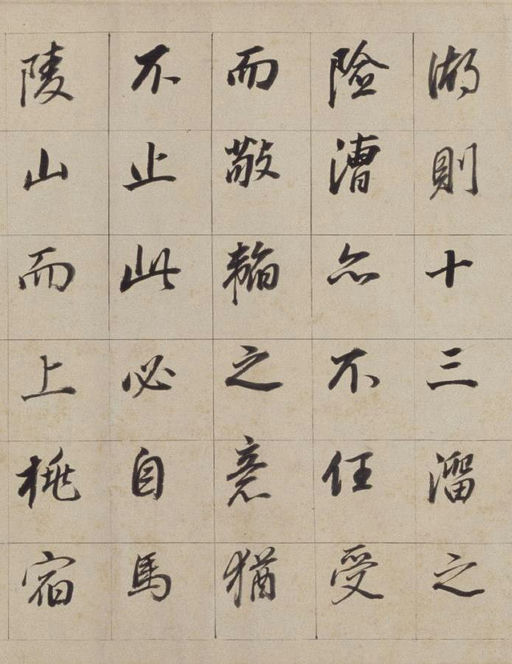 湖則十三溜之
險漕亦不任受
而敵韜之意猶
不止此必自馬
陵山而上桃宿